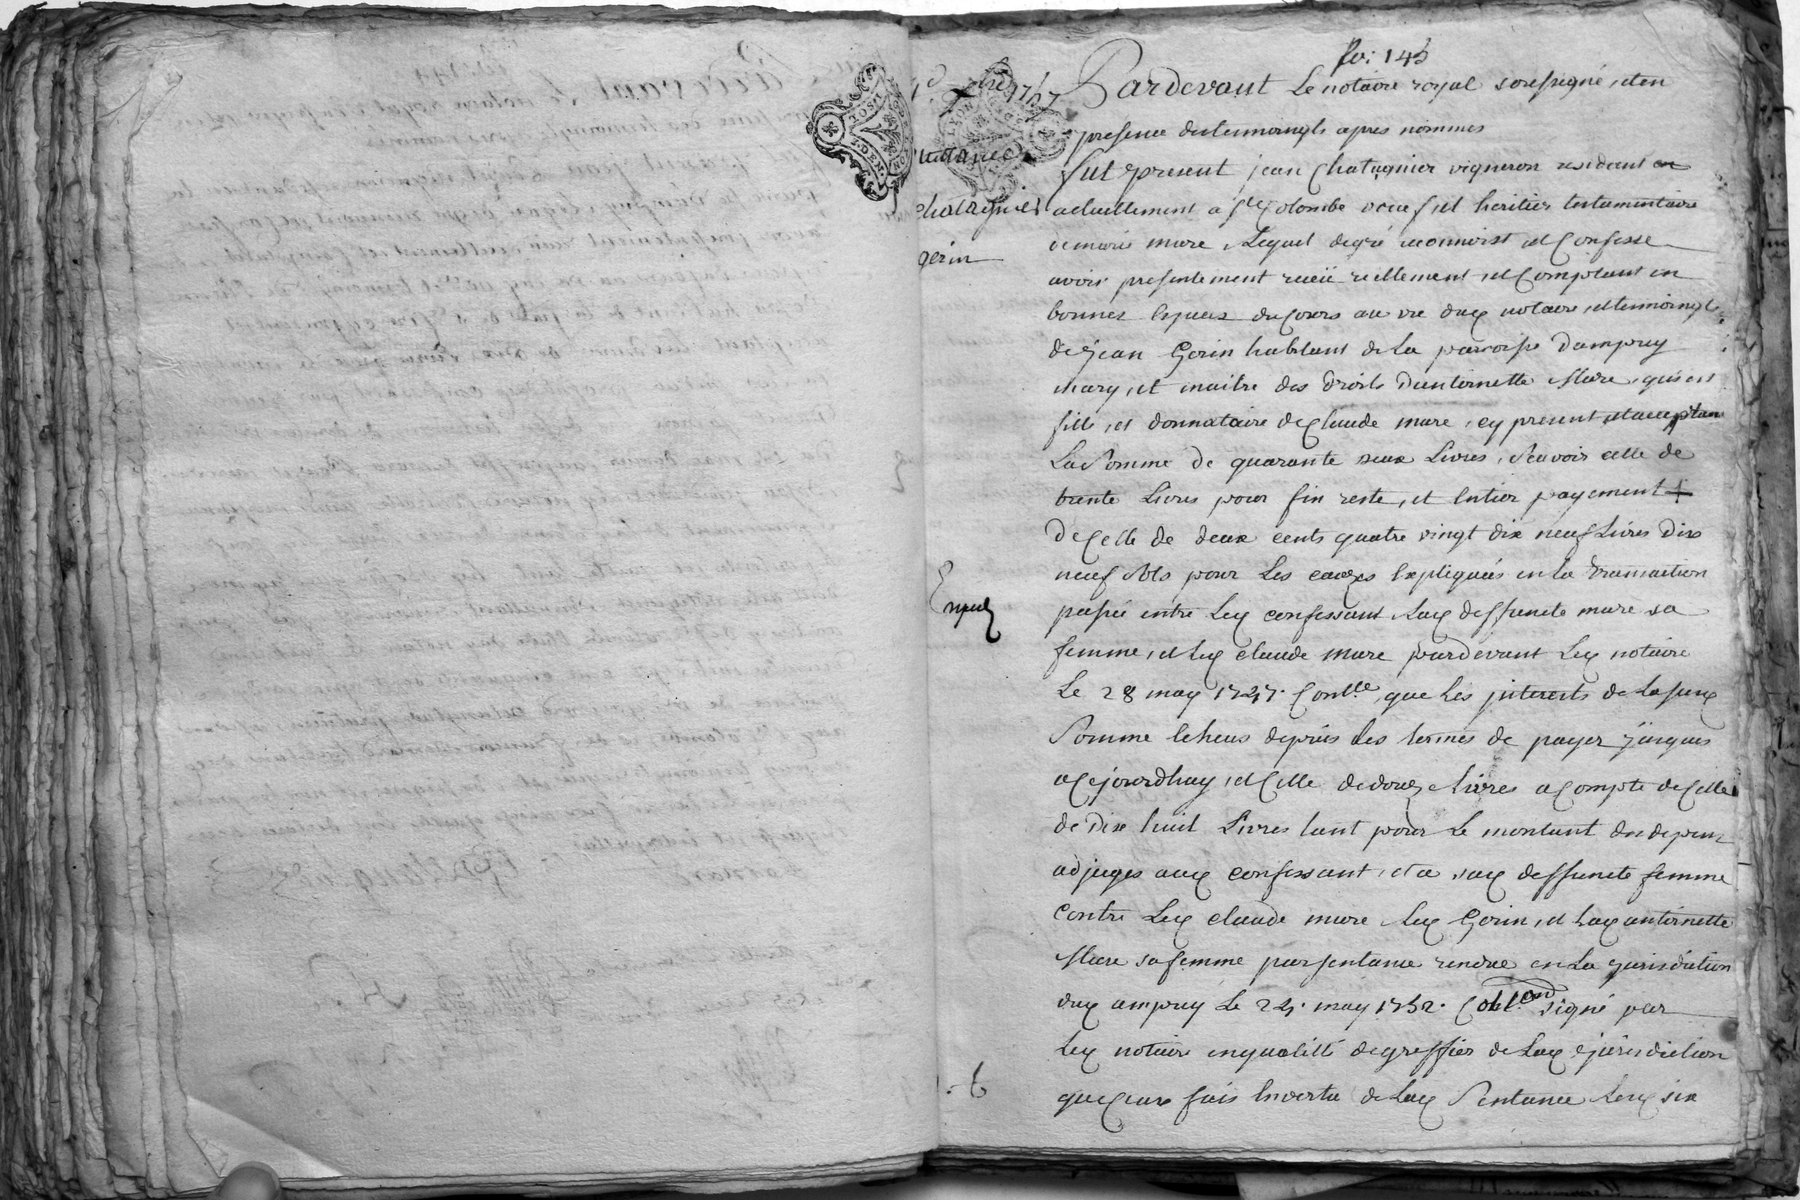 fo: 145
Pardevant Le notaire royal soussigné, et en
presence des temoingts apres nommes
fut present jean Chatagnier vigneron residant en
actuellement a Ste Colombe veuf et heritier testamentaire
de marie mure, Lequel degré reconnoist et Confesse
avoir presentement receü reellement et Comptant en
bonnes Especes du Cours au vû dud notaire, et temoingts
de jean Gerin habitant de La paroisse Dampuy
mary, et maitre des droits Dantoinette Mure, qui est
fille, et donnataire de Claude mure, cy present, et acceptan
La Somme de quarante deux Livres, Scavoir celle de
trente Livres pour fin reste, et Entier payement
De Celle de deux cents quatre vingt dix neuf Livres Dix
neuf sols pour Les causes Expliquées en La Transaction
passée entre Led confessant, Lad deffuncte mure sa
femme, et Led claude mure pardevant Led notaire
Le 28 may 1747. Conllé, que Les jnterests de La susd
Somme Echeus depuis Les termes de payer jusques
a Cejourdhuy, et Celle de douze Livres a Compte de Celle
de Dix huit Livres tant pour Le montant des depens
adjuges aud confessant, et a sad deffuncte femme
contre Led claude mure Led Gerin, et Lad antoinette
Mure sa femme par sentance rendue en La jurisdiction
dud ampuy Le 24. may 1752. signé par
Led notaire en qualitté de greffier de Lad jurisdiction
que frais En vertu de Lad Sentance Led six
quittance
chatagnier
gerin
Expéd